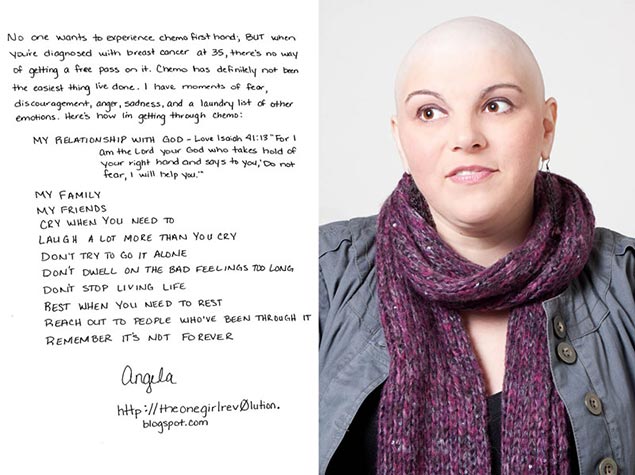 No one wants to experience chemo first hand, BUT when
you're diagnosed with breast cancer at 35, there's no way
of getting a free pass on it. Chemo has definitely not been
the easiest thing I've done. I have moments of fear,
discouragement, anger, sadness, and a laundry list of other
emotions. Here's how I'm getting through chemo:
MY RELATIONSHIP WITH GOD - Love Isaiah 41:13 "For I
am the Lord your God who takes hold of
your right hand and says to you, 'Do not
fear, I will help you.'"
MY FAMILY
MY FRIENDS
CRY WHEN YOU NEED TO
LAUGH A LOT MORE THAN YOU CRY
DON'T TRY TO GO IT ALONE
DON'T DWELL ON THE BAD FEELINGS TOO LONG
DON'T STOP LIVING LIFE
REST WHEN YOU NEED TO REST
REACH OUT TO PEOPLE WHO'VE BEEN THROUGH IT
REMEMBER IT'S NOT FOREVER
Angela
http://theonegirlrev0lution.
blogspot.com